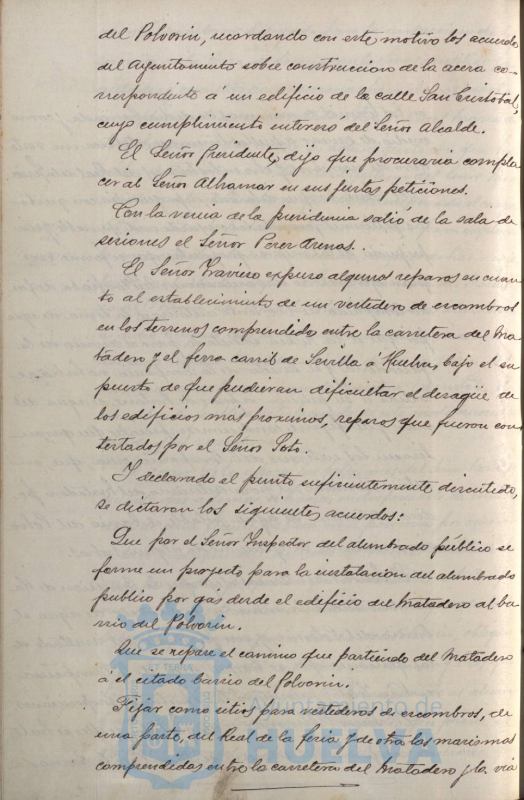 del Polvorin, recordando con este motivo los acuerdos
del Ayuntamiento sobre construccion de la acera co-
rrespondiente á un edificio de la calle San Cristobal,
cuyo cumplimiento interesó del Señor Alcalde.
El Señor Presidente, dijo que procuraria compla
cer al Señor Alhamar en sus justas peticiones.
Con la venia de la presidencia salió de la sala de
sesiones el Señor Perez Arenas.
El Señor Travieso expuso algunos reparos en cuan
to al establecimiento de un vertedero de escombros
en los terrenos comprendidos entre la carretera del Ma
tadero y el ferro carril de Sevilla á Huelva, bajo el su
puesto de que pudieran dificultar el desagüe de
los edificios más proximos, reparos que fueron con
testados por el Señor Soto.
Y declarado el punto suficientemente discutido,
se dictaron los siguientes acuerdos:
Que por el Señor Inspector del alumbrado público se
forme un proyecto para la instalacion del alumbrado
publico por gas desde el edificio del Matadero al ba
rrio del Polvorin.
Que se repare el camino que partiendo del Matadero
á el citado barrio del Polvorin.
Fijar como sitios para vertederos de escombros, de
una parte, del Real de la feria y de otra las marismas
comprendidas entre la carretera del Matadero y la via
Ayuntamiento de
HUELVA